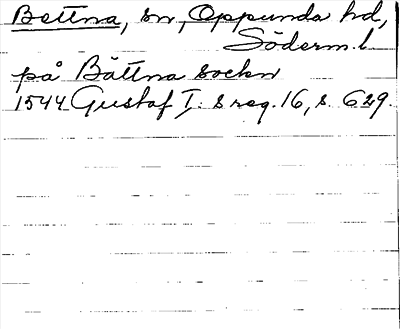 Bettna, sn, Oppunda hd,
Söderm. l
på Bättna sockn
1544 Gustaf I: s reg. 16, s. 629.